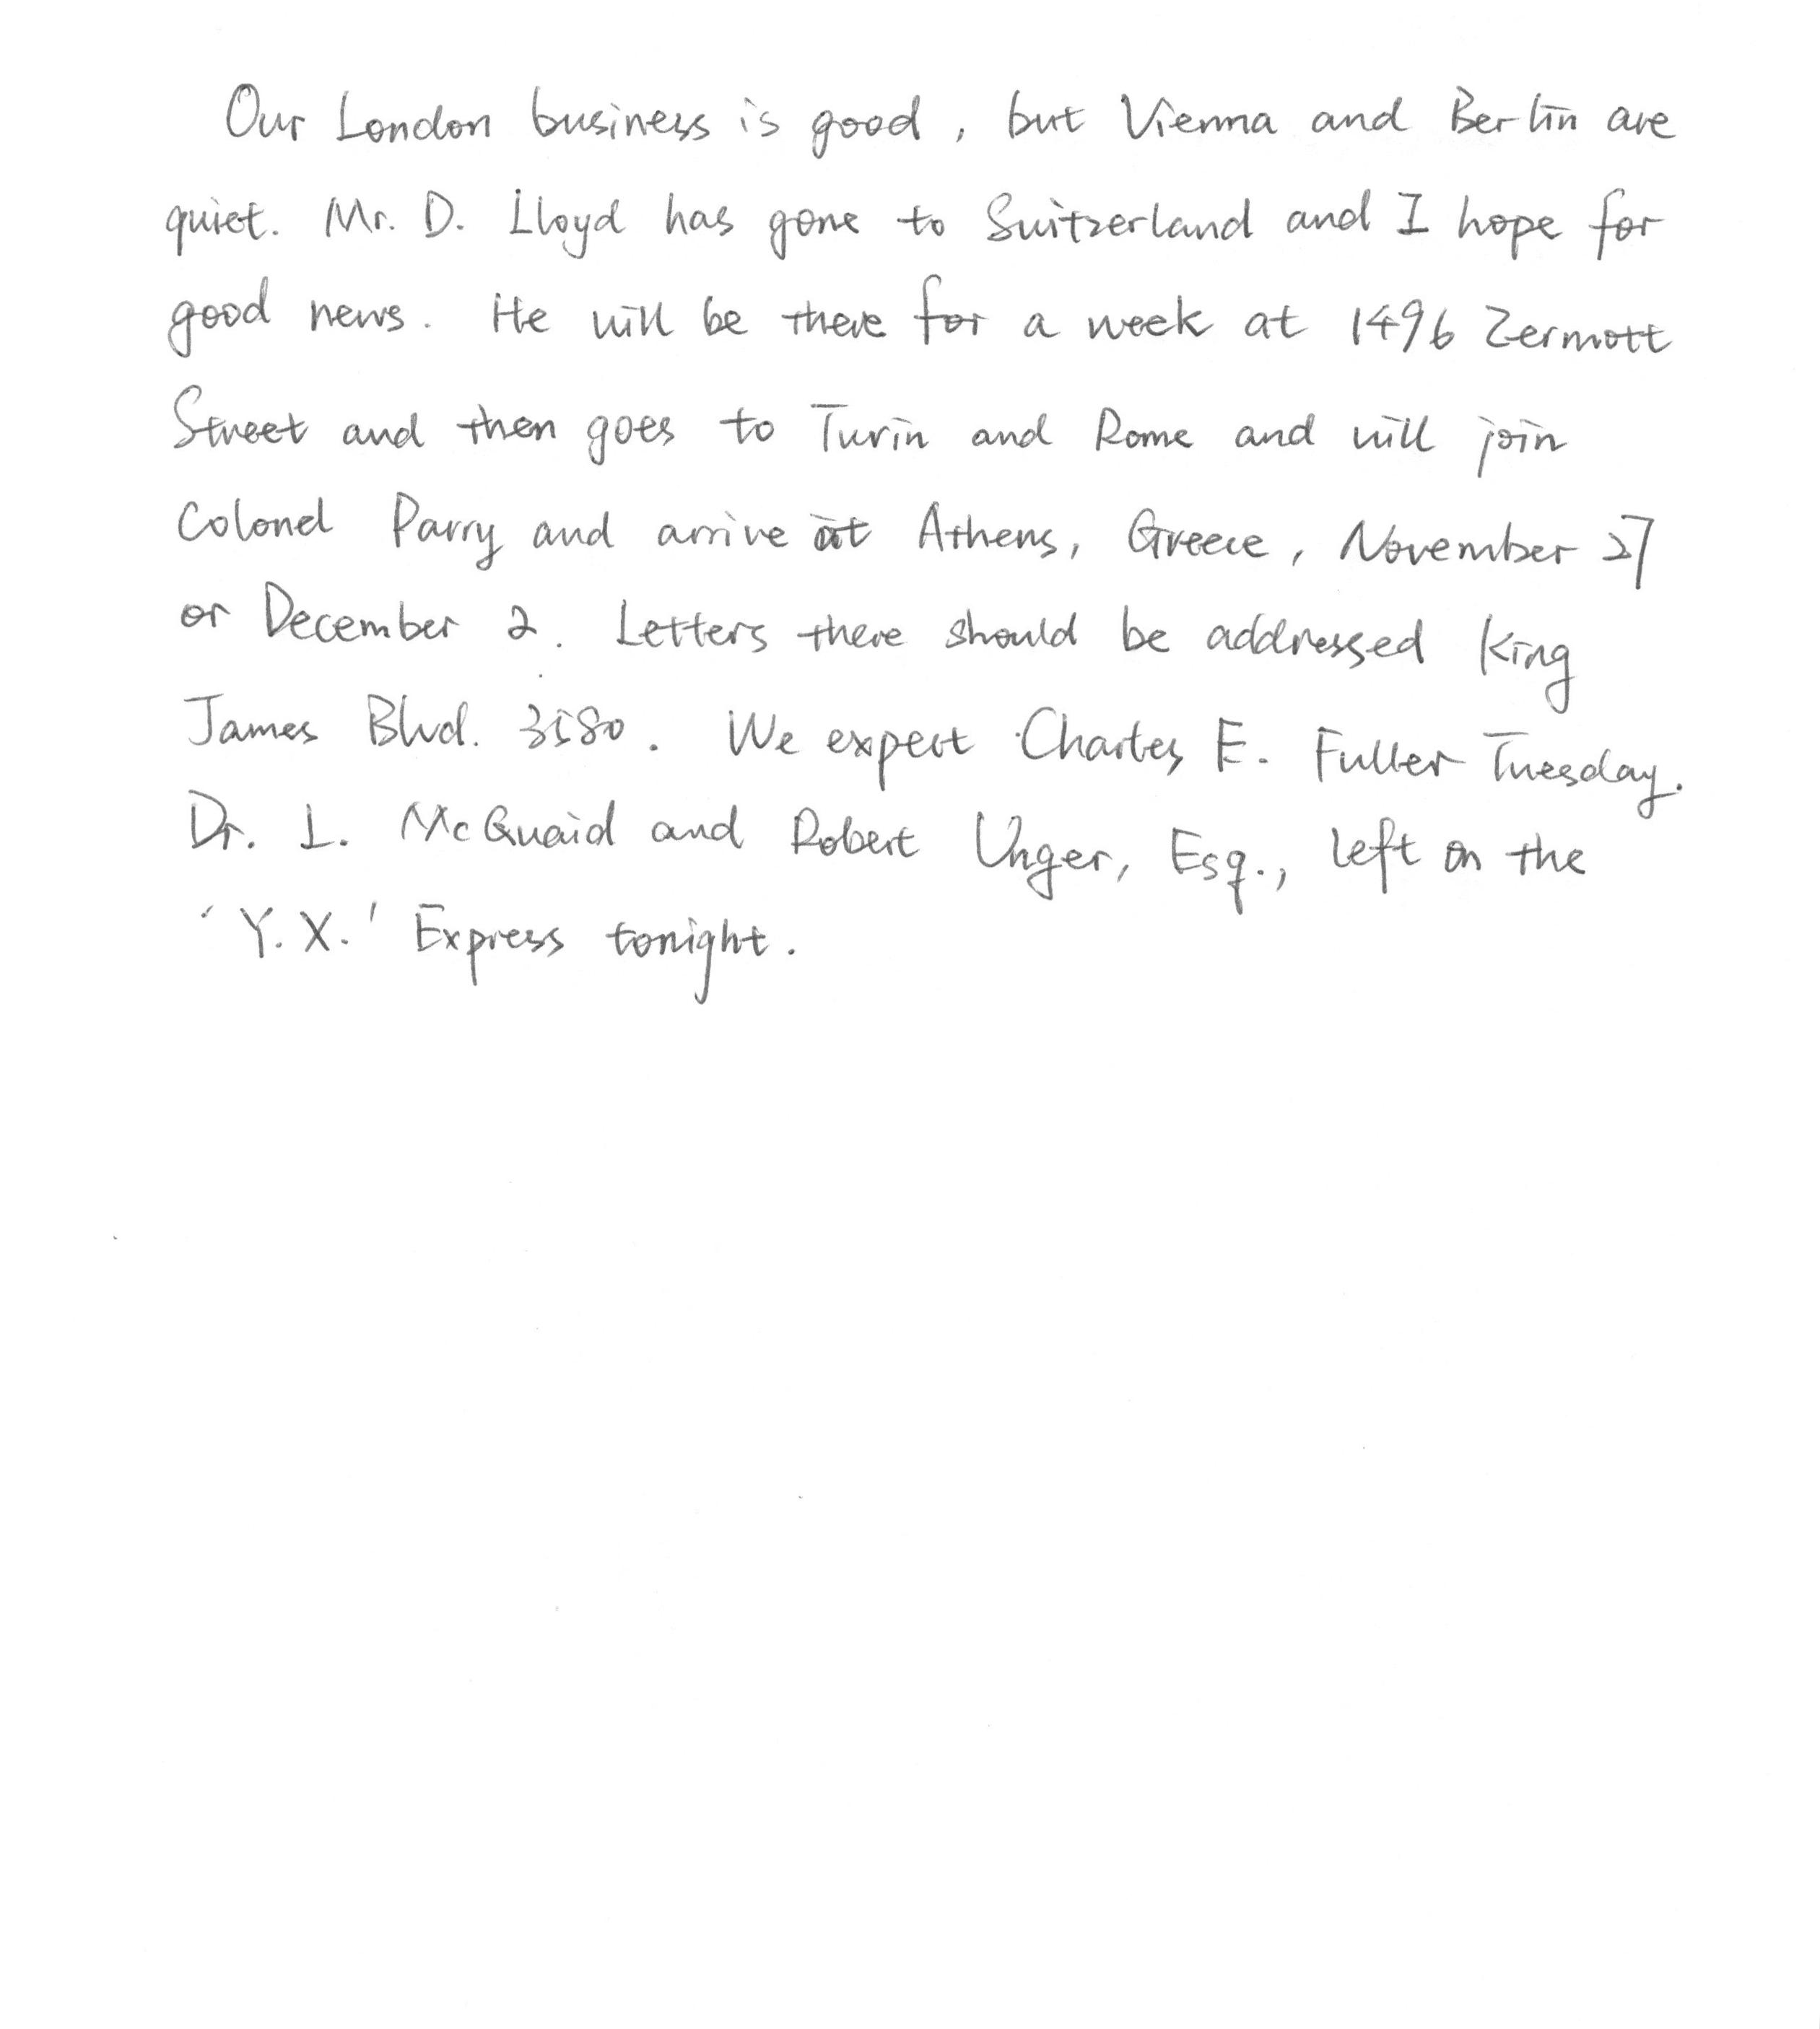 Our London business is good, but Vienna and Berlin are
quiet. Mr. D. Lloyd has gone to Switzerland and I hope for
good news. He will be there for a week at 1496 Zermott
Street and then goes to Turin and Rome and will join
Colonel Parry and arrive at Athens, Greece, November 27
or December 2. Letters there should be addressed King
James Blvd. 3580. We expect Charles E. Fuller Tuesday.
Dr. L. McQuaid and Robert Unger, Esq., left on the
'Y.X.' Express tonight.